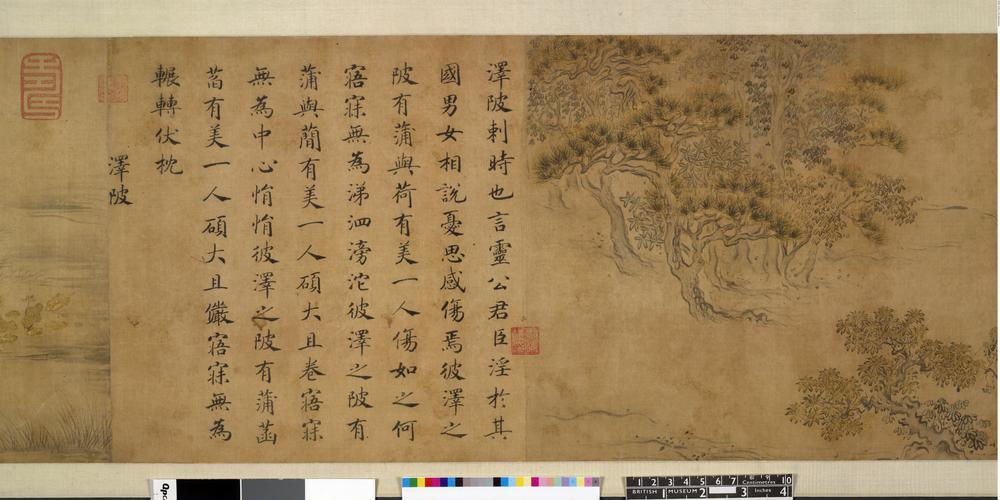 澤陂刺時也言靈公君臣淫於其
國男女相説憂思感傷焉彼澤之
陂有蒲與荷有美一人傷如之何
寤寐無為涕泗滂沱彼澤之陂有
蒲與蕳有美一人碩大且卷寤寐
無為中心悁悁彼澤之陂有蒲菡
萏有美一人碩大且儼寤寐無為
輾轉伏枕
澤陂
1 2 3 4 5 6 7 8 9 10
Centimetres
BRITISH MUSEUM
2 3 Inches 4